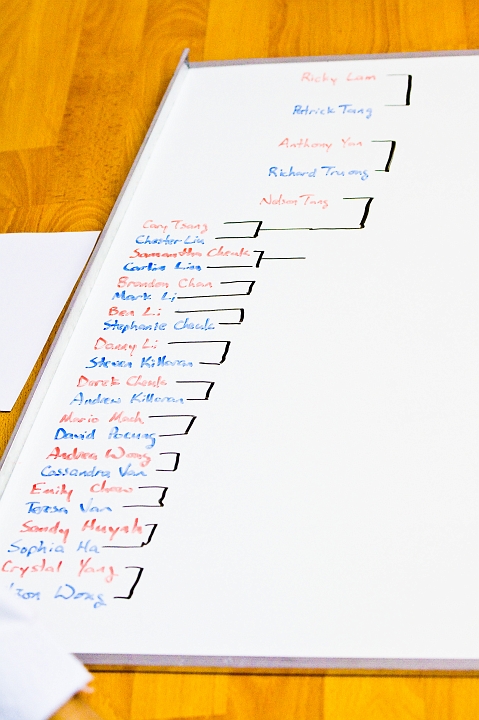 Ricky Lam
Patrick Tang
Anthony Yan
Richard Truong
Nelson Tang
Cary Tsang
Chester Liu
Samantha Cheuk
Carlin Lim
Brandon Chan
Mark Li
Ben Li
Stephanie Cheuk
Danny Li
Steven Killoran
Derick Cheuk
Andrew Killoran
Mario Mach
David Poeung
Andrea Wong
Cassandra Van
Emily Chow
Teresa Van
Sandy Huynh
Sophia Ha
Crystal Yang
Wong